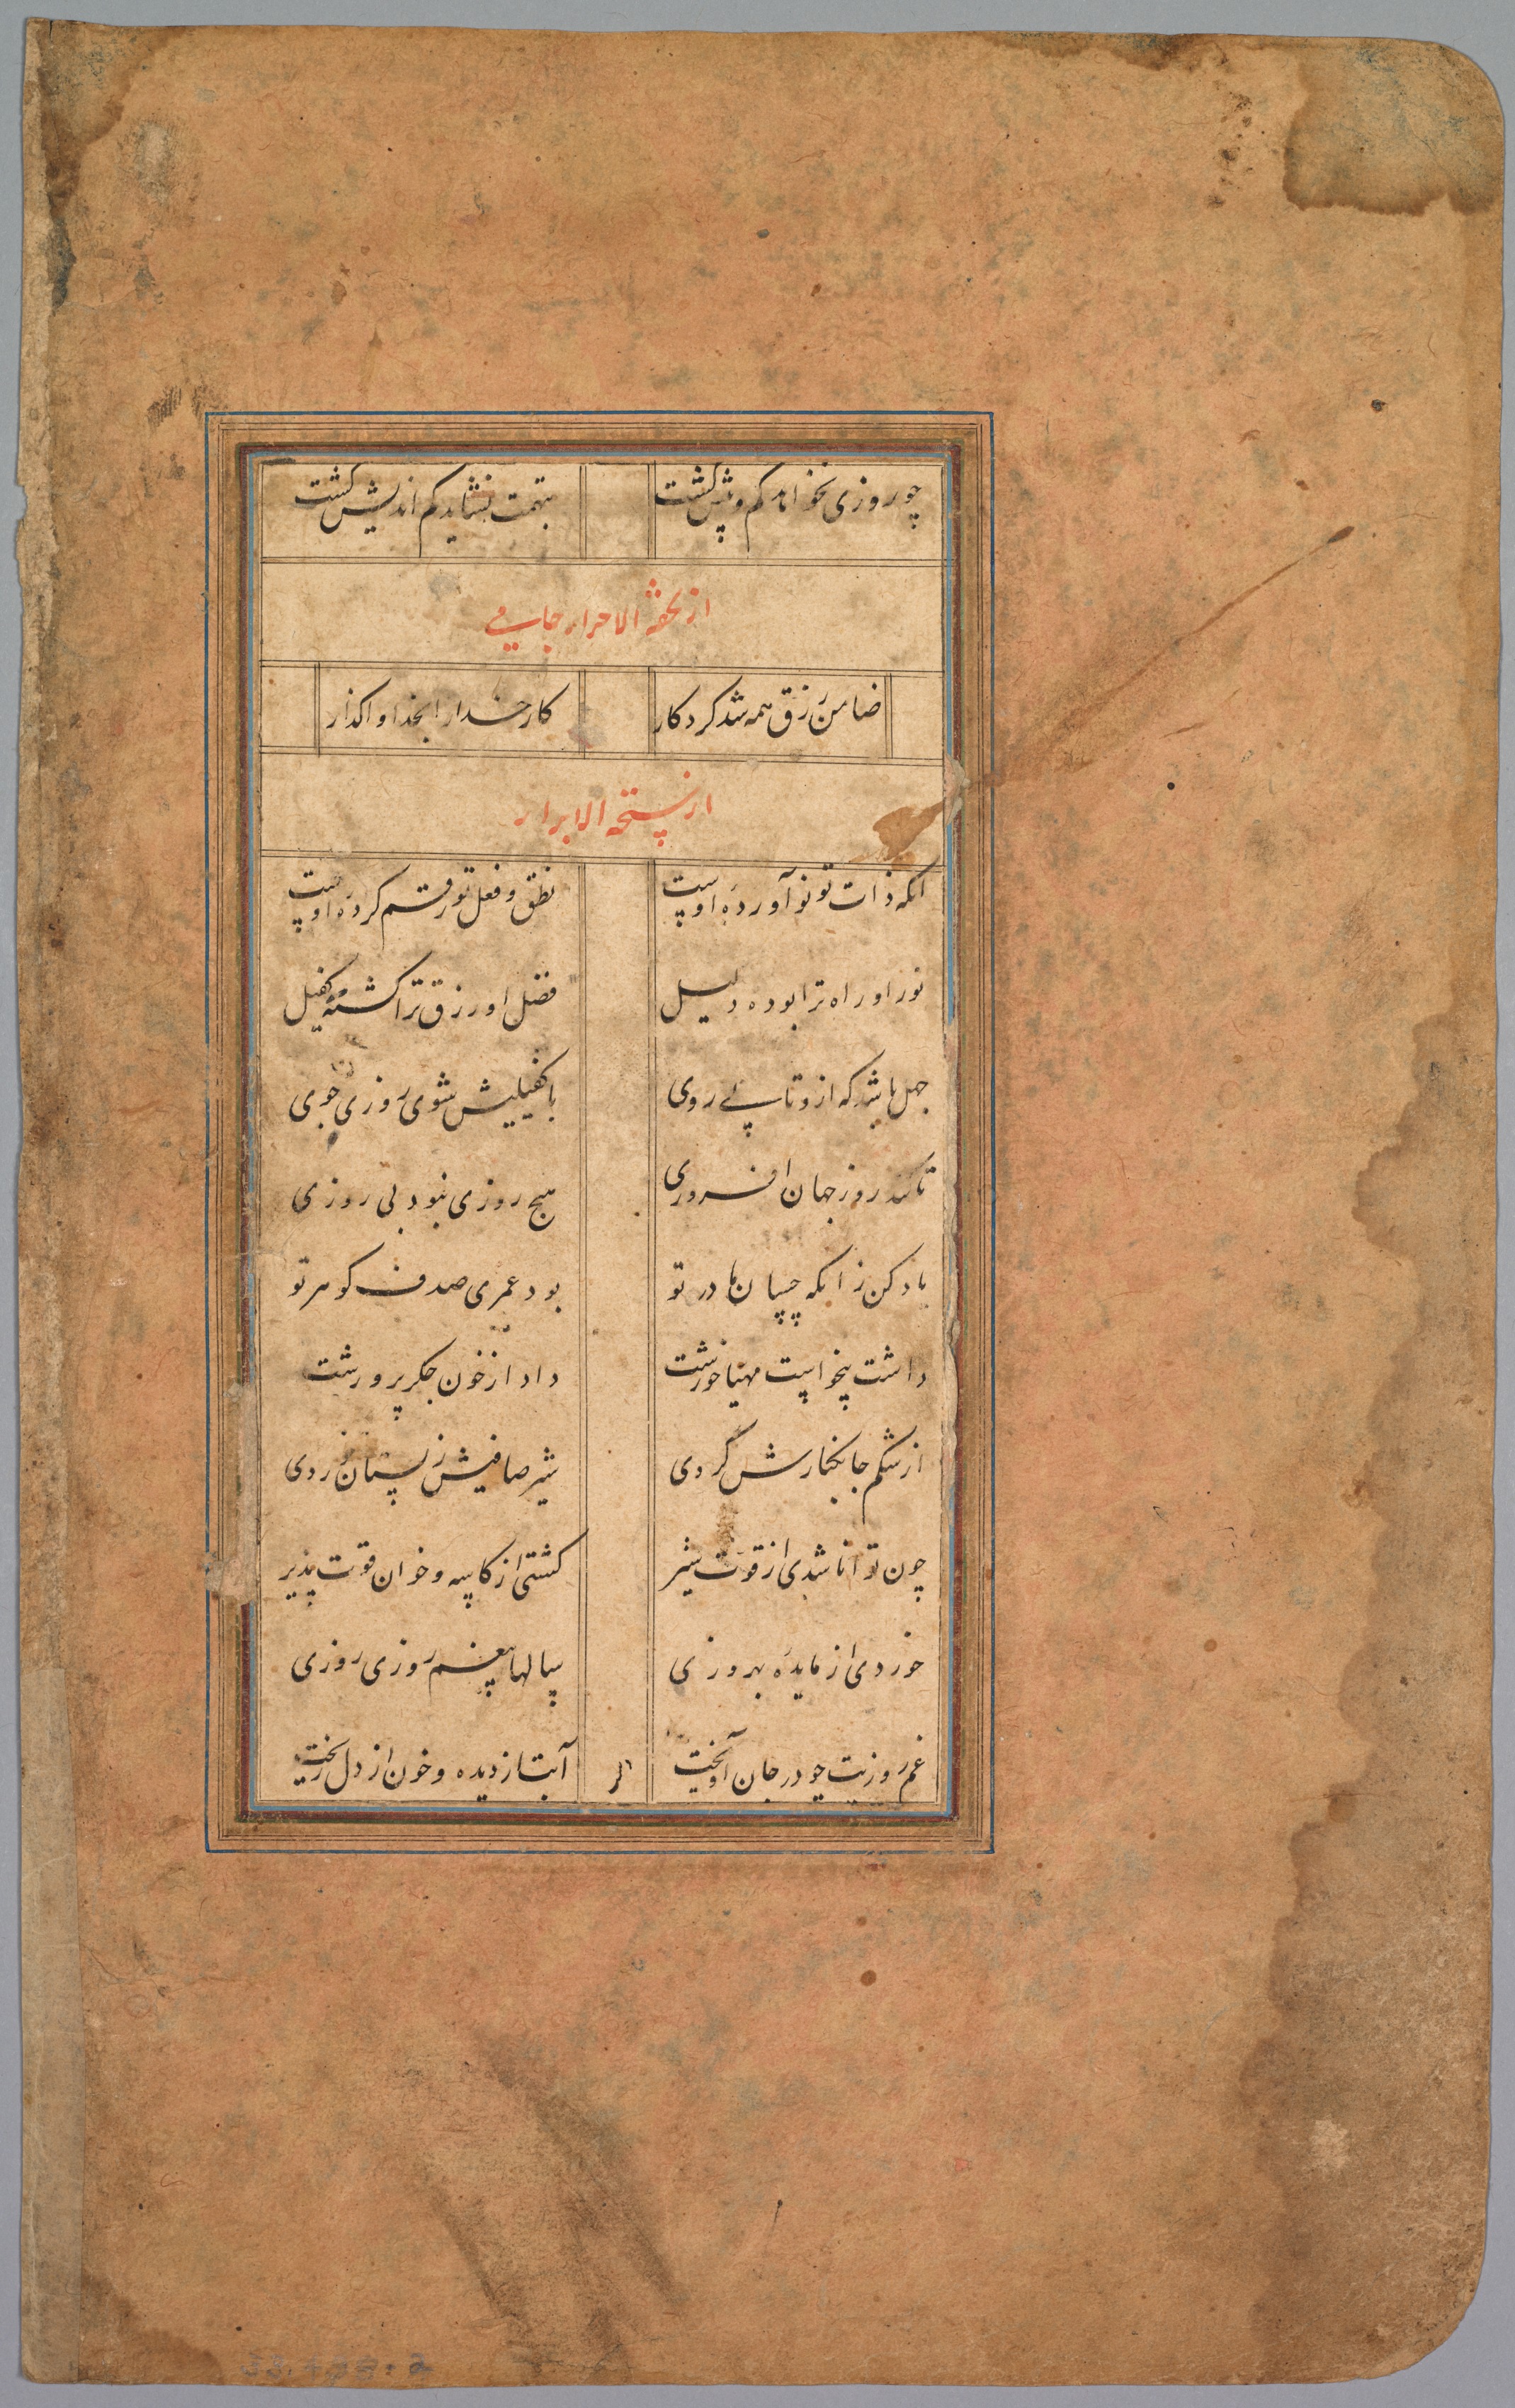 چو روزی نخواهد کم و بیش گشت بتهمت نشاید کم اندیش گشت
از تحفة الاحرار جامی
ضامن رزق همه شد کردکار کار خدا را بخدا واگذار
از سبحة الابرار
انکه ذات تو نو آورده اوست نطق و فعل تو رقم کرده اوست
نور او راه ترا بوده دلیل فضل او رزق ترا گشته کفیل
جهل باشد که ازو تابی روی با کفیلیش شوی روزی جوی
تا کند روز جهان افروزی هیچ روزی نبود بی روزی
یاد کن زانکه چسان مادر تو بود عمری صدف گوهر تو
داشت بیخواست مهیا خورشت داد از خون جگر پرورشت
از شکم جا بکنارش کردی شیر صافیش ز پستان خوردی
چون توانا شدی از قوت شیر گشتی از کاسه و خوان قوت پذیر
خوردی از مایده بهروزی سالها بیغم روزی روزی
غم روزیت چو در جان آویخت آبت از دیده و خون از دل ریخت